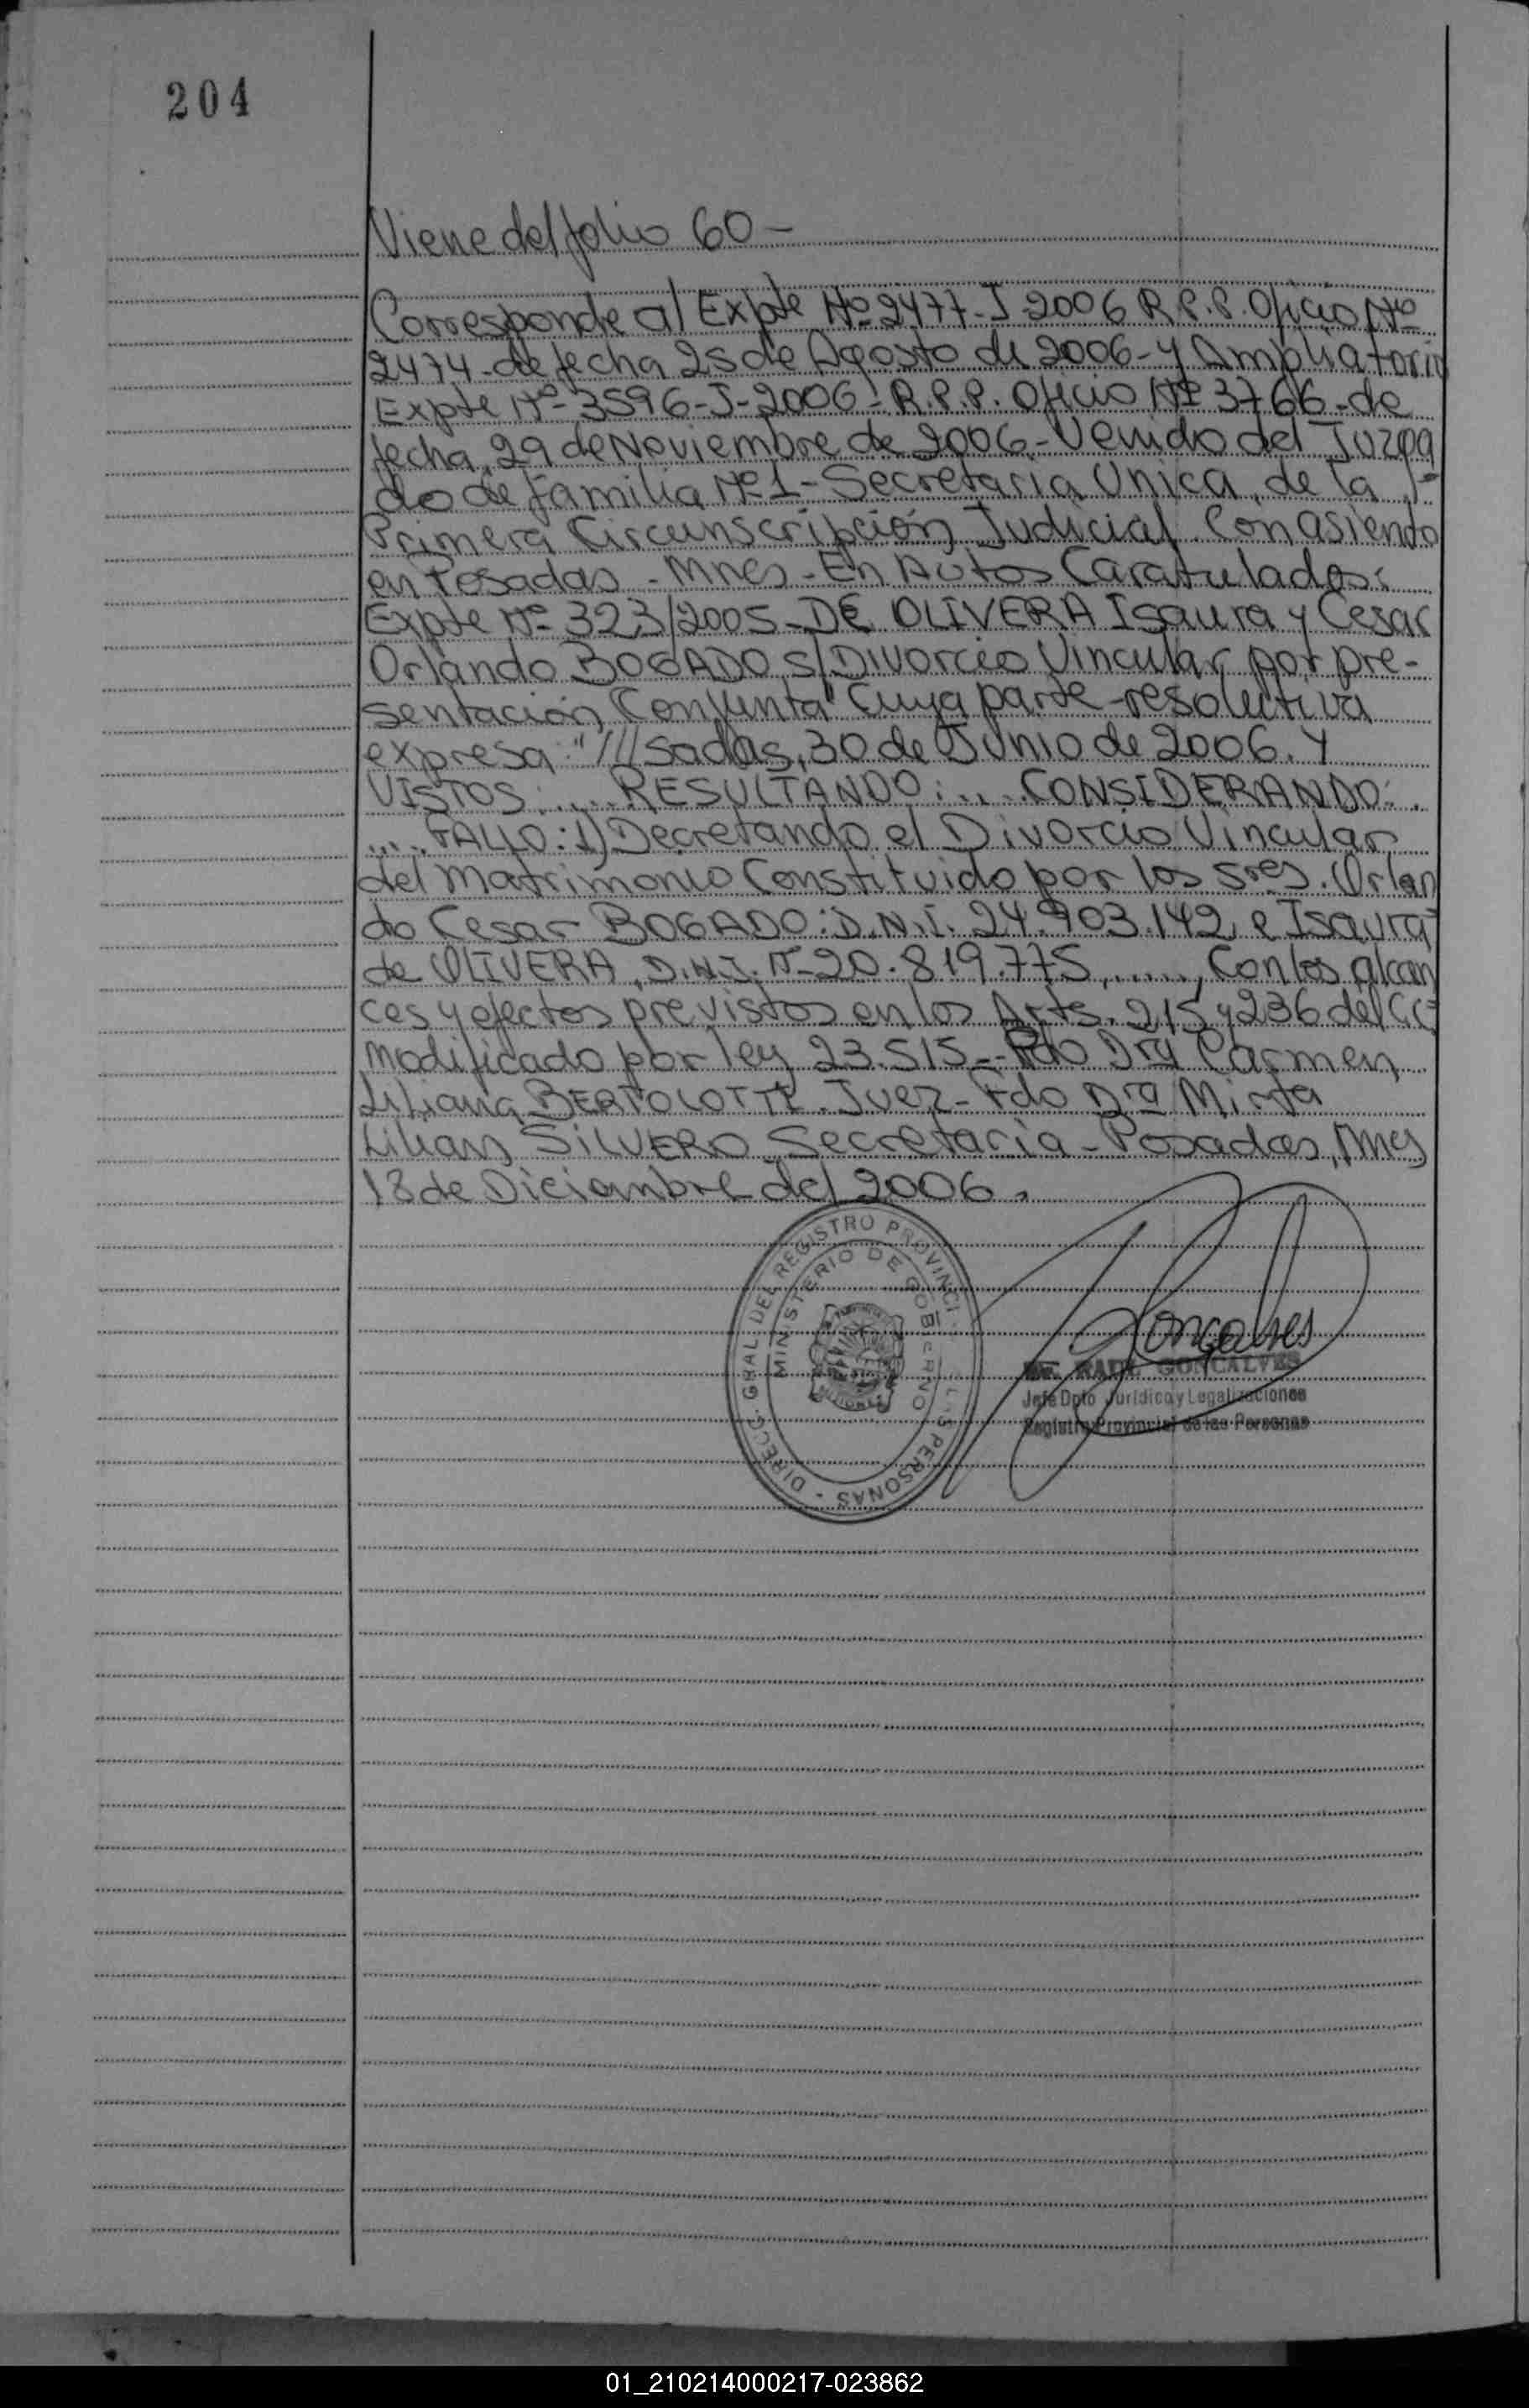 204
Viene del folio 60 -
Corresponde al Expte Nº 2477-J-2006 R.P.P. Oficio Nº
2474 - de fecha 25 de Agosto de 2006 - y Ampliatorio
Expte Nº 3596-J-2006 - R.P.P. Oficio Nº 3766 - de
fecha, 29 de Noviembre de 2006 - Venido del Juzga
do de familia Nº 1 - Secretaria Unica, de la
Primera Circunscripción Judicial. Con asiento
en Posadas - Mnes - En Autos Caratulados:
Expte Nº 323/2005 - DE OLIVERA Isaura y Cesar
Orlando BOGADO s/ Divorcio Vincular por pre-
sentación Conjunta" Cuya parte resolutiva
expresa: "///sadas, 30 de Junio de 2006. Y
VISTOS: .... RESULTANDO: .... CONSIDERANDO: .
.... FALLO: 1) Decretando el Divorcio Vincular
del matrimonio Constituido por los Sres. Orlan
do Cesar BOGADO: D.N.I. 24.903.142, e Isaura
de OLIVERA, D.N.I. Nº 20.819.775, ....., Con los alcan
ces y efectos previstos en los Arts. 215 y 236 del CC
modificado por ley 23.515 - Fdo Dra Carmen
Liliana BERTOLOTTI. Juez - Fdo Dra Mirta
Lilian SILVERO Secretaria - Posadas, Mnes
18 de Diciembre del 2006.
DIRECC. GRAL DEL REGISTRO PROVINCI L S PERSONAS -
MINISTERIO DE GOBIERNO
PROVINCIA
MISIONES
Goncalves
Dr. RAUL GONCALVES
Jefe Dpto Juridico y Legalizaciones
Registro Provincial de las Personas
01_210214000217-023862